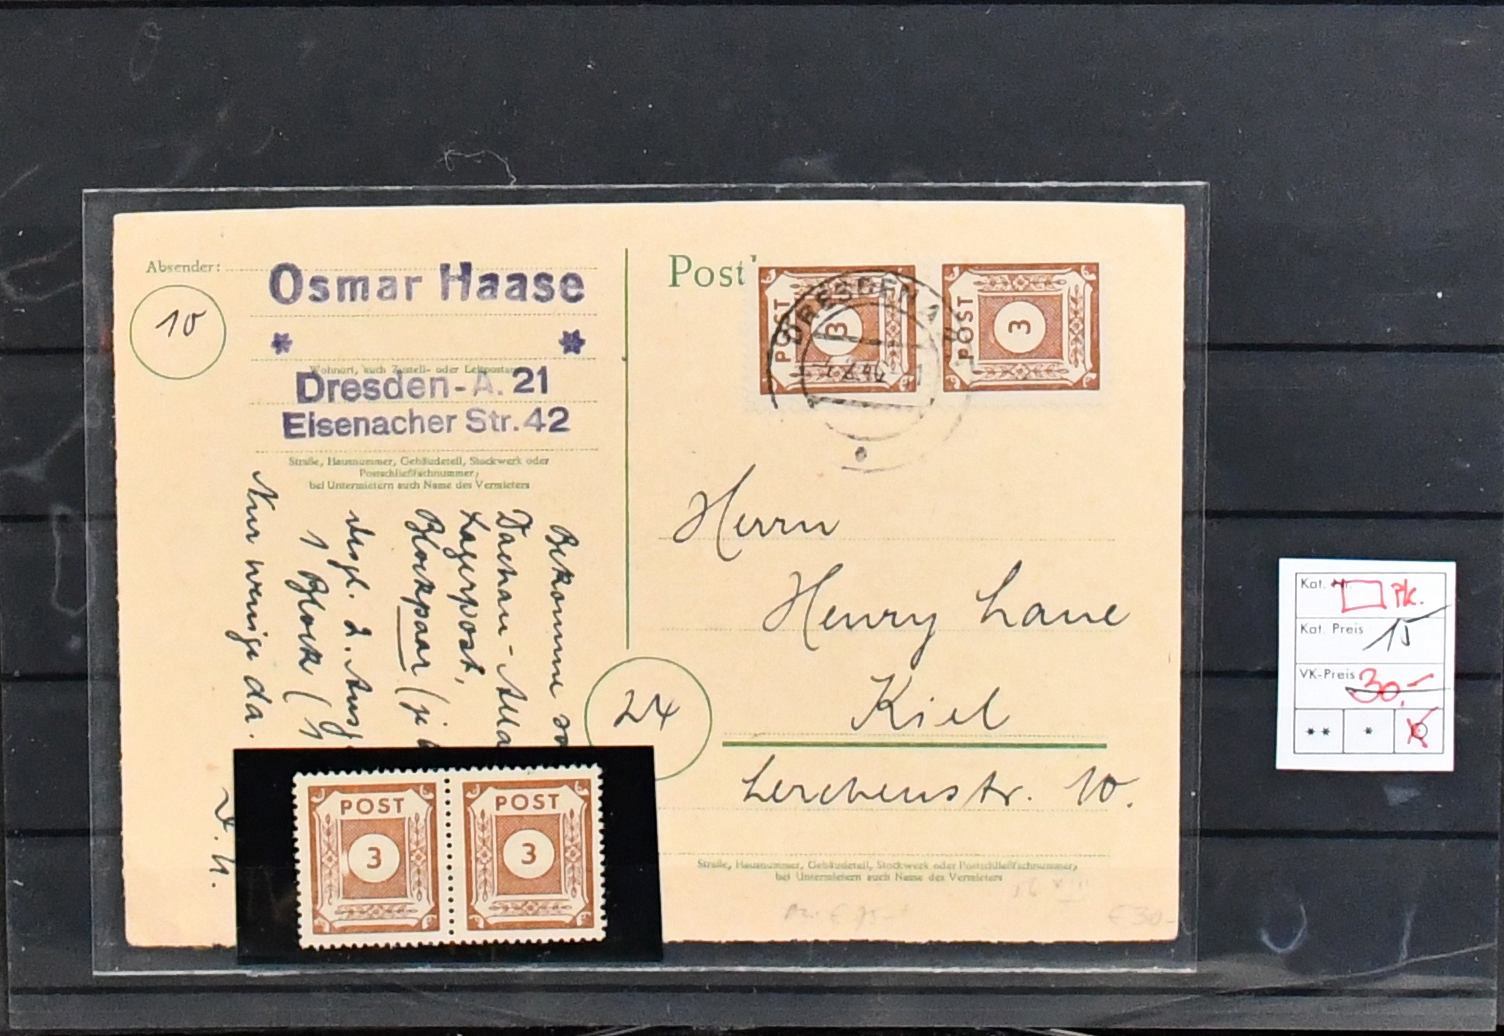 Absender:
Osmar Haase
10
Wohnort, auch Zustell- oder Leitpostamt
Dresden-A. 21
Eisenacher Str. 42
Straße, Hausnummer, Gebäudeteil, Stockwerk oder
Postschließfachnummer;
bei Untermietern auch Name des Vermieters
Bekomme
Dachau-
Lagerpost,
Blockpaar (je
desgl. 2.
1 Block (
Nur wenige da.
Post
POST
3
POST
3
DRESDEN A
Herrn
Henry Lane
Kiel
24
Lerchenstr. 10.
Straße, Hausnummer, Gebäudeteil, Stockwerk oder Postschließfachnummer;
bei Untermietern auch Name des Vermieters
€ 30-
POST
3
POST
3
Kat. Nr. Pk.
Kat. Preis 15
VK-Preis 30,-
** *